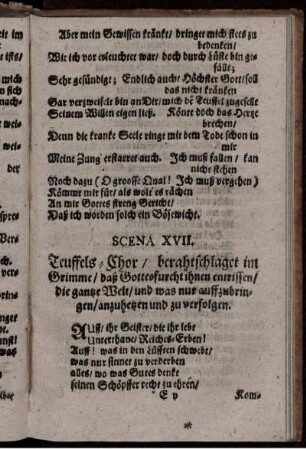 Aber mein Gewissen kränkt/ dringet mich stets zu
bedenken/
Wie ich vor erleuchtet war/ doch durch Lüste bin ge-
fällt;
Sehr gesündigt; Endlich auch/ Höchster Gott/ soll
das nicht kränken
Gar verzweifelt bin an Dir/ mich dẽ Teuffel zugesellt
Seinem Willen eigen ließ. Könt doch das Hertze
brechen/
Denn die krancke Seele ringt mit dem Tode schon in
mir
Meine Zung' erstarret auch. Ich muß fallen/ kan
nicht stehen
Noch dazu (O grosse Qual! Ich muß vergehen)
Kömmt mir für/ als wolt es rächen
An mir Gottes streng Gericht/
Daß ich worden solch ein Bösewicht.
SCENA XVII.
Teuffels-Chor/ berahtschlaget im
Grimme/ daß Gottesfurcht ihnen entrissen/
die gantze Welt/ und was nur auffzubrin-
gen/ anzuhetzen und zu verfolgen.
AUff/ ihr Geister/ die ihr lebt
Unterthane/ Reiches-Erben!
Auff! was in den Lüfften schwebt/
was nur sinnet zu verderben
alles/ wo was Gutes denkt
seinen Schöpffer recht zu ehren/
E v
Kom-